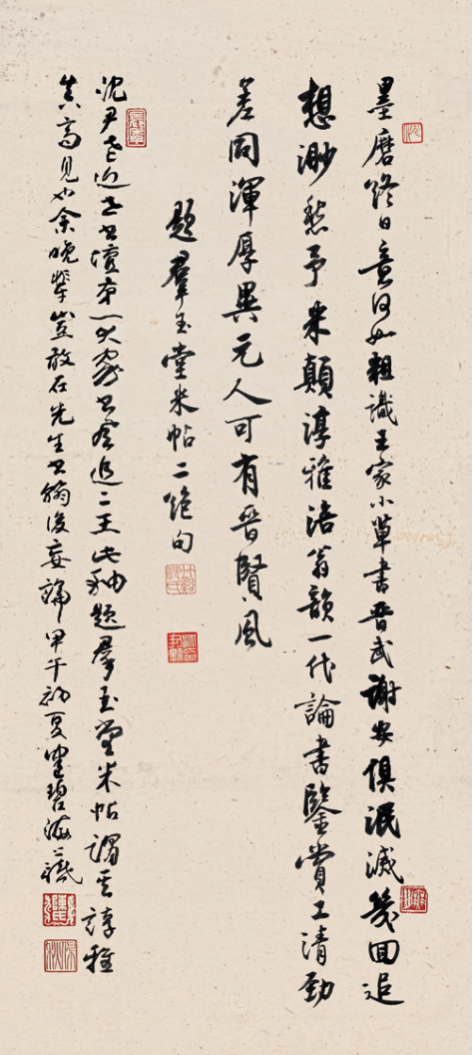 墨磨終日竟何如粗識王家小草書晋武謝安俱泯滅幾回追
想渺愁予米顛淳雅涪翁韻一代論書鑒賞工清勁
差同渾厚異元人可有晉賢風
題羣玉堂米帖二絶句
沈尹老近世書壇第一大家書奄追二王此軸題羣玉堂米帖謂其淳雅
真高見也余晚輩豈敢在先生書翰後妄論甲午初夏